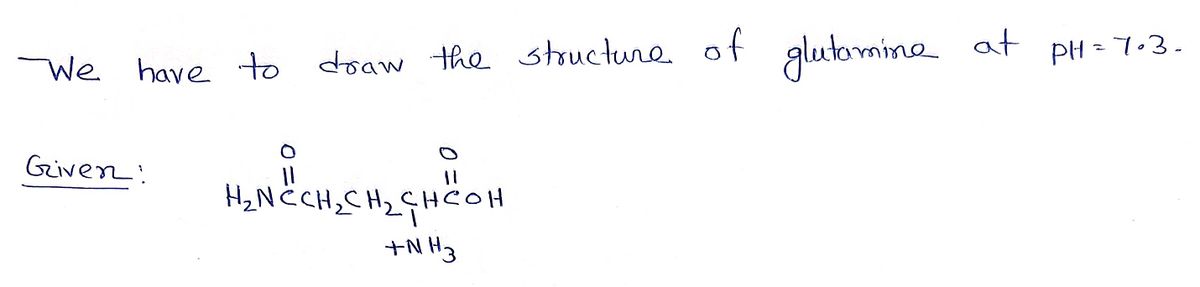 We have to draw the structure of glutamine at pH = 7.3.
Given:
O O
|| ||
H₂NCCH₂CH₂CHCOH
|
+NH₃